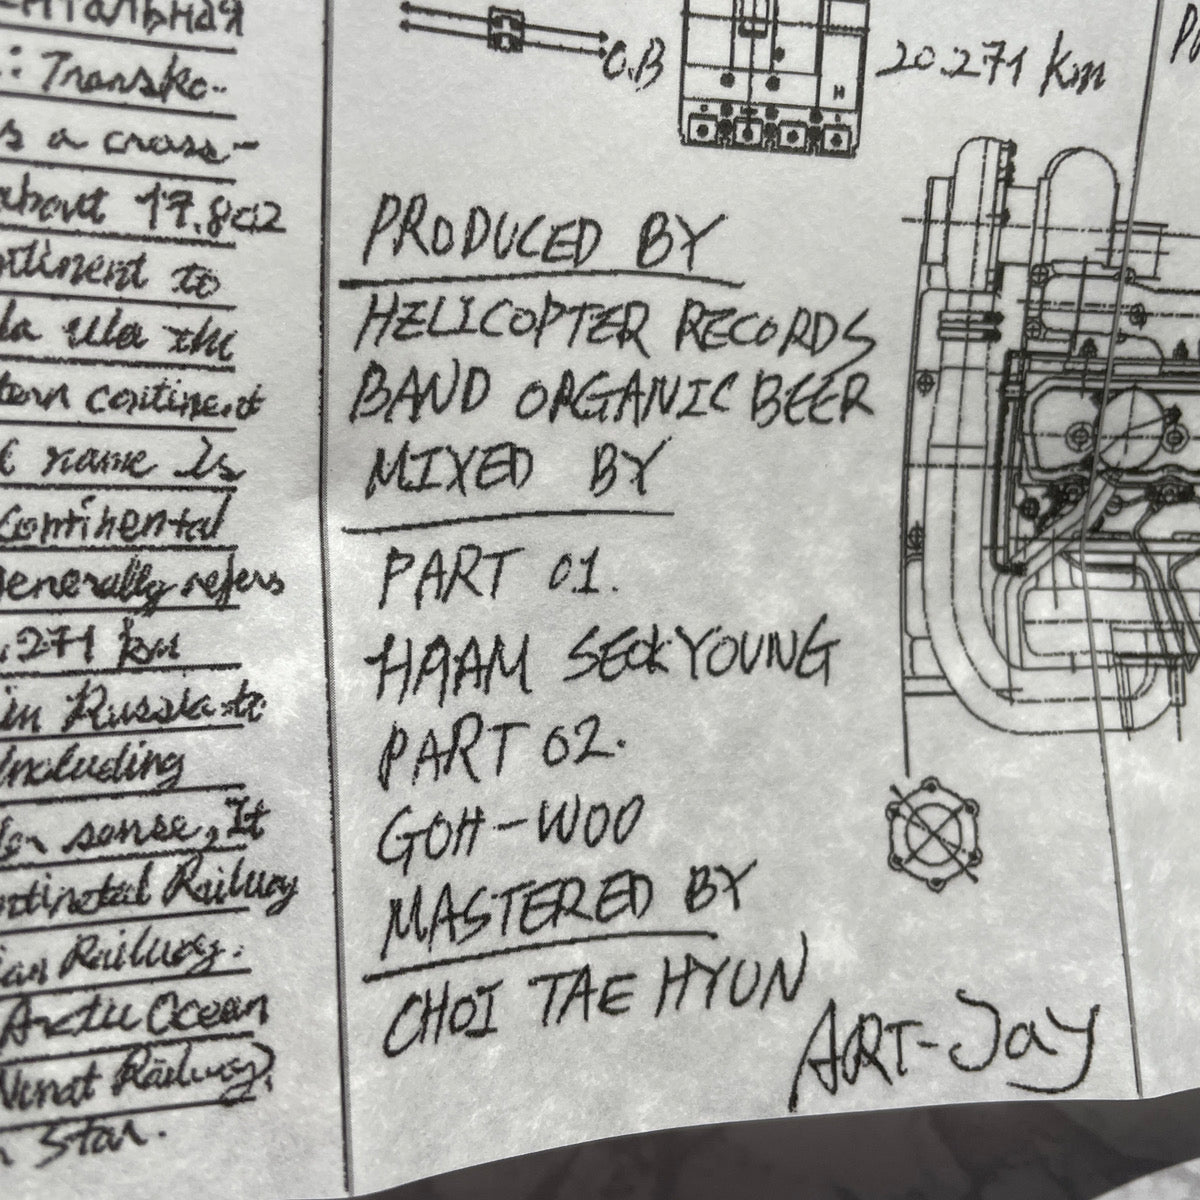 нтальная
: Transko..
s a cross-
about 17.802
ntinent to
la via the
tern continent
t name Is
Continental
generally refers
.271 km
in Russia to
Including
sense, It
ntinetal Railway
ian Railway.
Arctic Ocean
Nerat Railway.
n Star.
O.B
20.271 km
H
PRODUCED BY
HELICOPTER RECORDS
BAND ORGANIC BEER
MIXED BY
PART 01.
HAAM SEOKYOUNG
PART 02.
GOH-WOO
MASTERED BY
CHOI TAE HYUN
ART-Jay